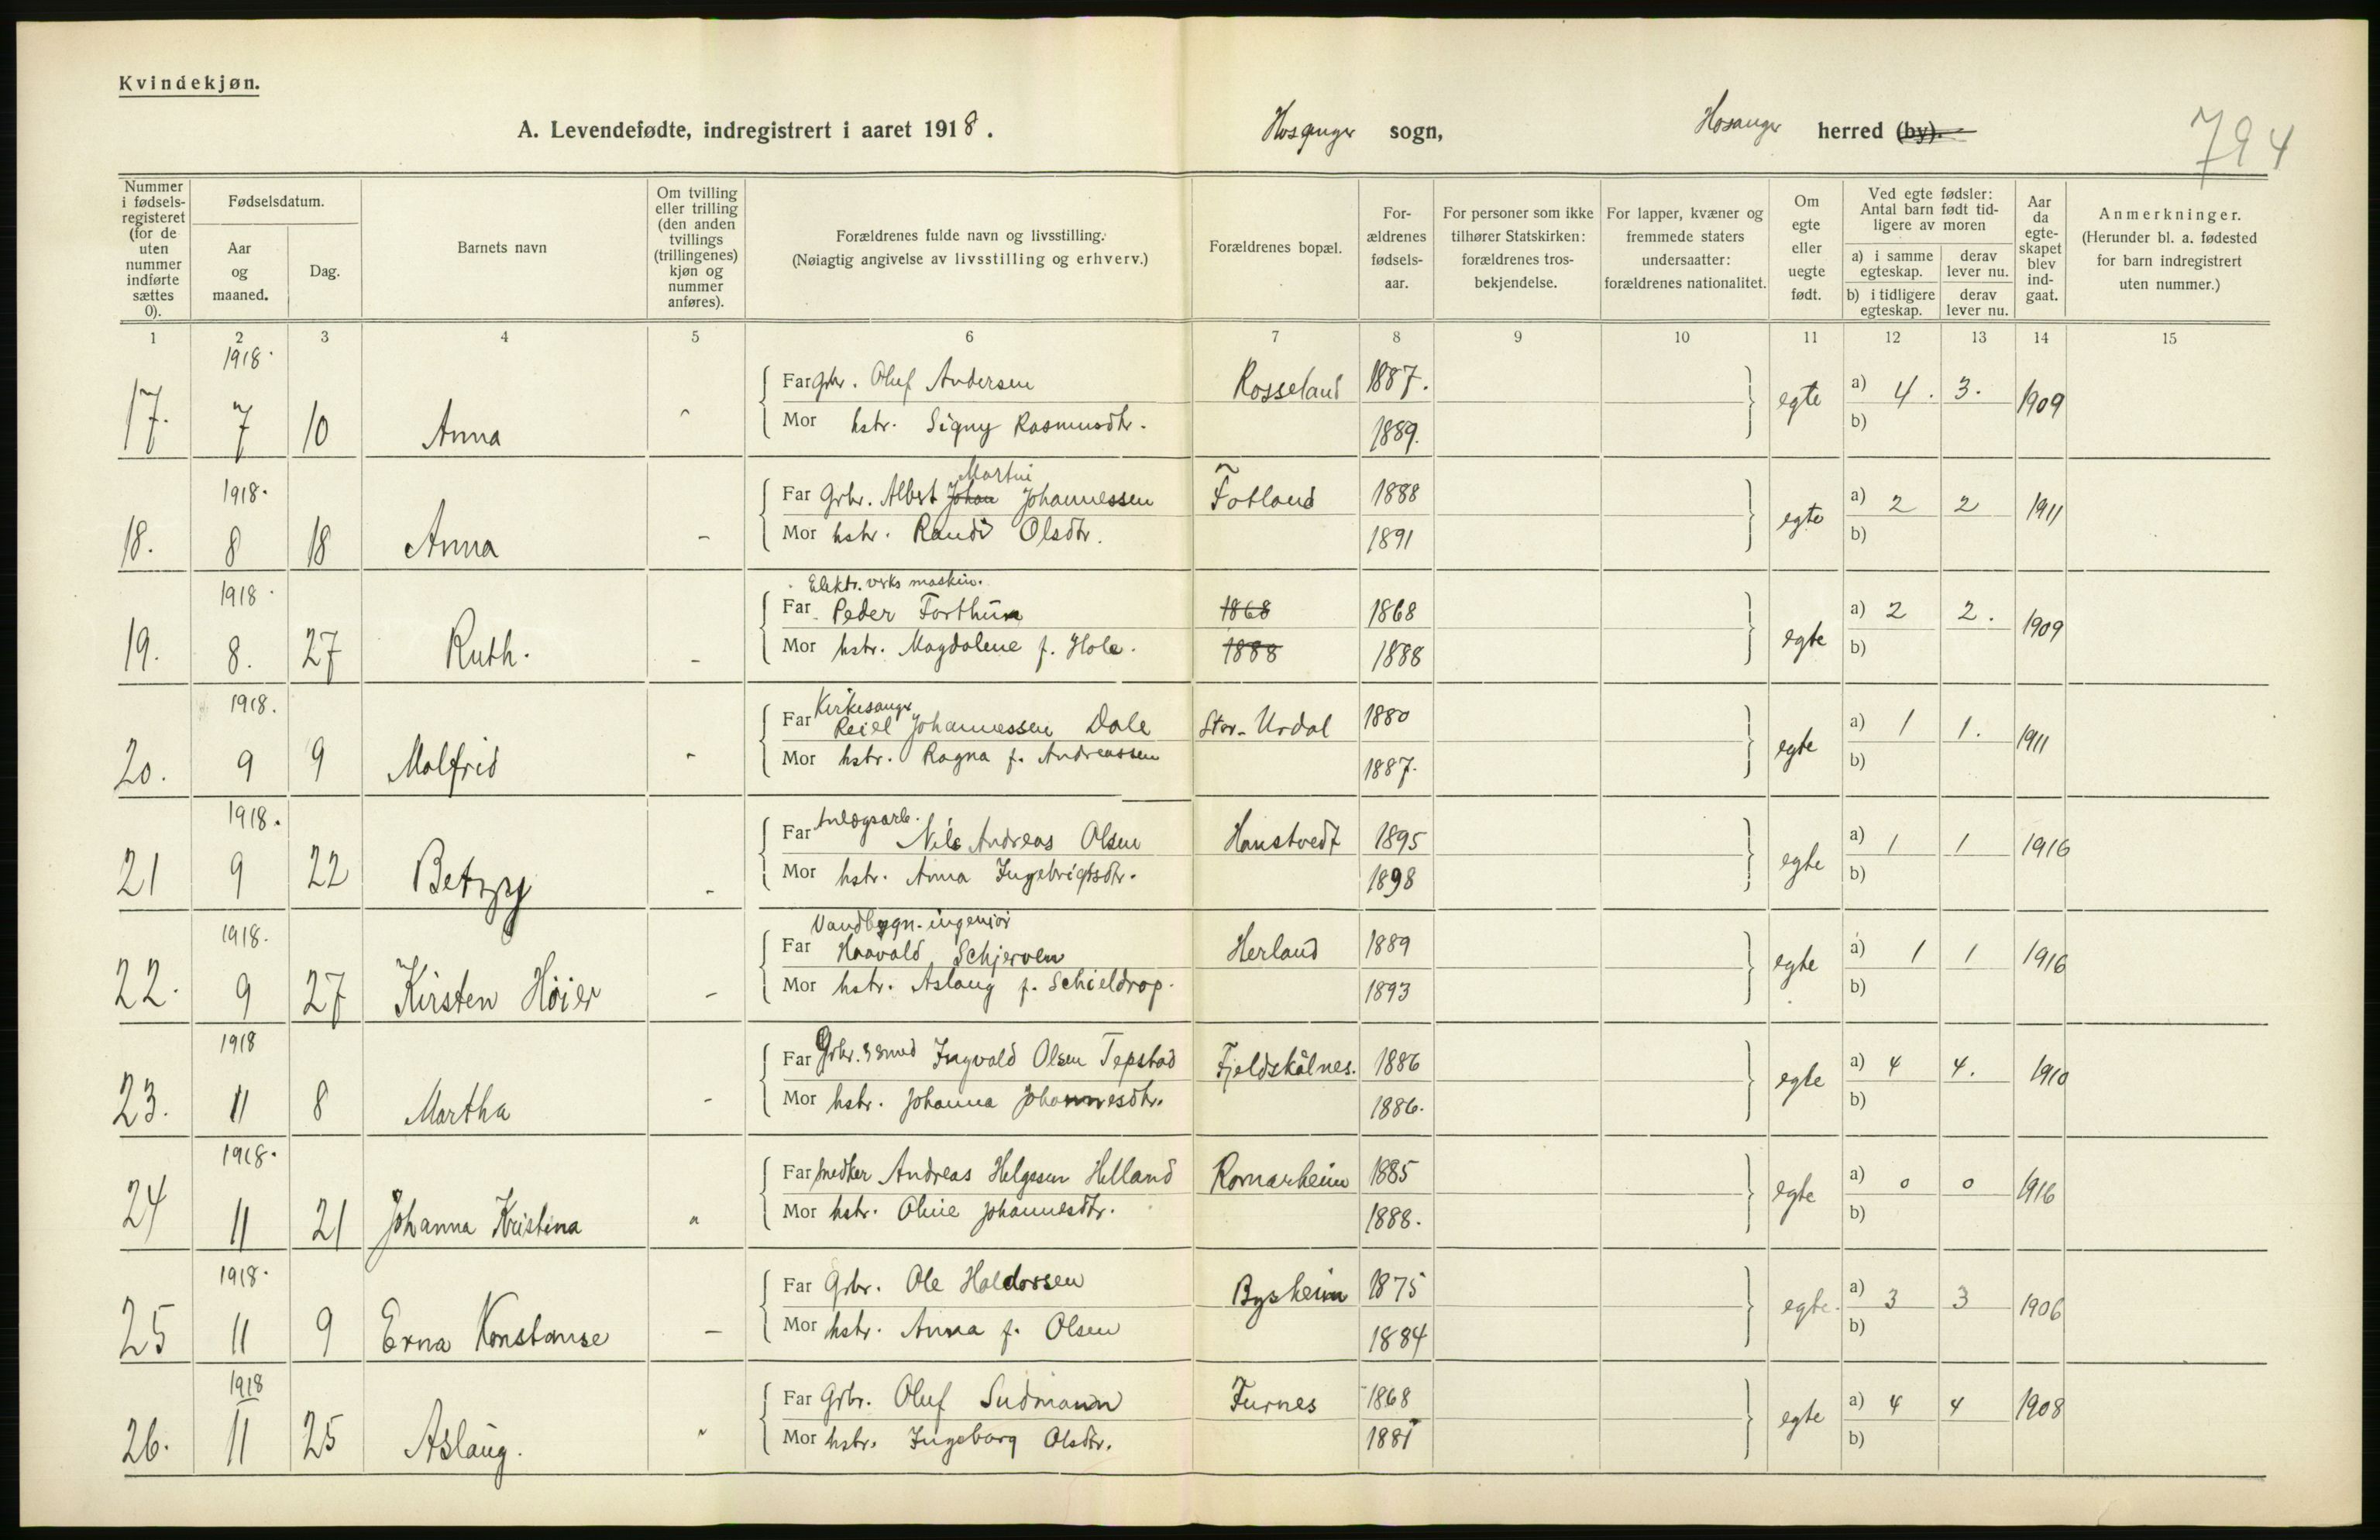 Kvindekjøn.
A. Levendefødte, indregistrert i aaret 1918.
Hosanger sogn,
Hosanger herred (by).
794
Nummer i fødsels-registeret (for de uten nummer indførte sættes 0).
Fødselsdatum.
Aar og maaned.
Dag.
Barnets navn
Om tvilling eller trilling (den anden tvillings (trillingenes) kjøn og nummer anføres).
Forældrenes fulde navn og livsstilling.
(Nøiagtig angivelse av livsstilling og erhverv.)
Forældrenes bopæl.
For-ældrenes fødsels-aar.
For personer som ikke tilhører Statskirken: forældrenes tros-bekjendelse.
For lapper, kvæner og fremmede staters undersaatter: forældrenes nationalitet.
Om egte eller uegte født.
Ved egte fødsler: Antal barn født tid-ligere av moren
a) i samme egteskap.
derav lever nu.
b) i tidligere egteskap.
derav lever nu.
Aar da egte-skapet blev ind-gaat.
Anmerkninger.
(Herunder bl. a. fødested for barn indregistrert uten nummer.)
1 2 3 4 5 6 7 8 9 10 11 12 13 14 15
1918.
17. 7 10 Anna
Far gbr. Oluf Andersen Rosseland 1887.
Mor hstr. Signy Rasmusdtr. 1889.
egte a) 4. 3. 1909
b)
1918.
18. 8 18 Anna -
Martin
Far Grbr. Albert Johan Johannessen Fotland 1888
Mor hstr. Randi Olsdtr. 1891
egte a) 2 2 1911
b)
1918.
19. 8. 27 Ruth. -
Elektr. verks maskin.
Far Peder Forthun 1868 1868
Mor hstr. Magdalene f. Hole. 1888 1888
egte a) 2 2. 1909
b)
1918.
20. 9 9 Molfrid -
Kirkesanger
Far Reiel Johannessen Dale Stor-Urdal 1880
Mor hstr. Ragna f. Andreassen 1887.
egte a) 1 1. 1911
b)
1918.
21 9 22 Betzy -
Anlægsarb.
Far Nils Andreas Olsen Hanstvedt 1895
Mor hstr. Anna Ingebrigtsdtr. 1898
egte a) 1 1 1916
b)
1918.
22. 9 27 Kirsten Höier -
Vandbygn. ingeniör
Far Haavald Schjerven Herland 1889
Mor hstr. Aslaug f. Schieldrop. 1893
egte a) 1 1 1916
b)
1918
23. 11 8 Martha -
Far Grbr. & smed Ingvald Olsen Tepstad Fjeldskålnes. 1886
Mor hstr. Johanna Johannesdtr. 1886.
egte a) 4 4. 1910
b)
1918.
24 11 21 Johanna Kristina
Far Andreas Helgesen Helland Romarheim 1885
Mor hstr. Oline Johannesdtr. 1888.
egte a) 0 0 1916
b)
1918.
25 11 9 Erna Konstanse -
Far Grbr. Ole Haldorsen Bysheim 1875
Mor hstr. Anna f. Olsen 1884
egte. a) 3 3 1906
b)
1918
26. 11 25 Aslaug.
Far Grbr. Oluf Sudmann Furnes 1868
Mor hstr. Ingeborg Olsdtr. 1881
egte a) 4 4 1908
b)